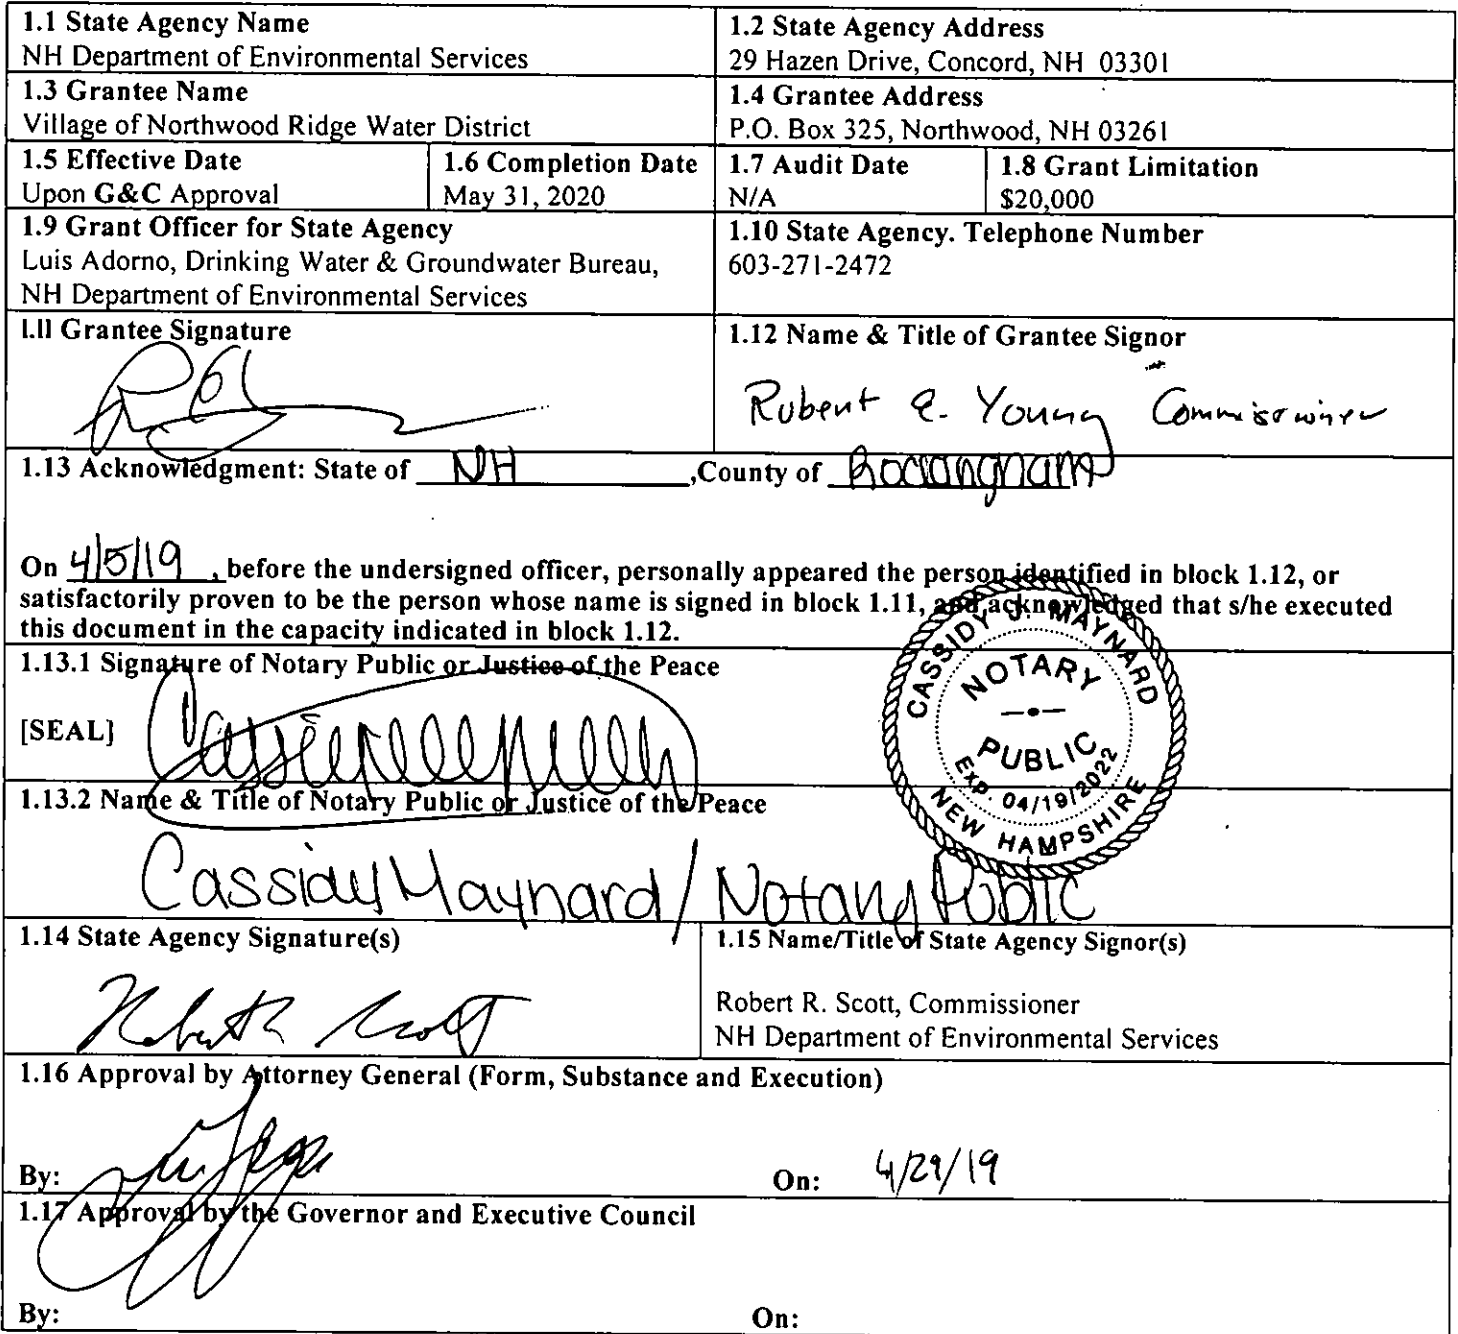 1.1 State Agency Name
NH Department of Environmental Services
1.2 State Agency Address
29 Hazen Drive, Concord, NH 03301
1.3 Grantee Name
Village of Northwood Ridge Water District
1.4 Grantee Address
P.O. Box 325, Northwood, NH 03261
1.5 Effective Date
Upon G&C Approval
1.6 Completion Date
May 31, 2020
1.7 Audit Date
N/A
1.8 Grant Limitation
$20,000
1.9 Grant Officer for State Agency
Luis Adorno, Drinking Water & Groundwater Bureau,
NH Department of Environmental Services
1.10 State Agency. Telephone Number
603-271-2472
1.11 Grantee Signature
1.12 Name & Title of Grantee Signor
Robert E. Young Commissioner
1.13 Acknowledgment: State of NH ,County of Rockingham
On 4/5/19 , before the undersigned officer, personally appeared the person identified in block 1.12, or
satisfactorily proven to be the person whose name is signed in block 1.11, and acknowledged that s/he executed
this document in the capacity indicated in block 1.12.
1.13.1 Signature of Notary Public or Justice of the Peace
[SEAL]
CASSIDY J. MAYNARD
NOTARY
PUBLIC
EXP. 04/19/2022
NEW HAMPSHIRE
1.13.2 Name & Title of Notary Public or Justice of the Peace
Cassidy Maynard / Notary Public
1.14 State Agency Signature(s)
1.15 Name/Title of State Agency Signor(s)
Robert R. Scott, Commissioner
NH Department of Environmental Services
1.16 Approval by Attorney General (Form, Substance and Execution)
By: On: 4/29/19
1.17 Approval by the Governor and Executive Council
By: On: